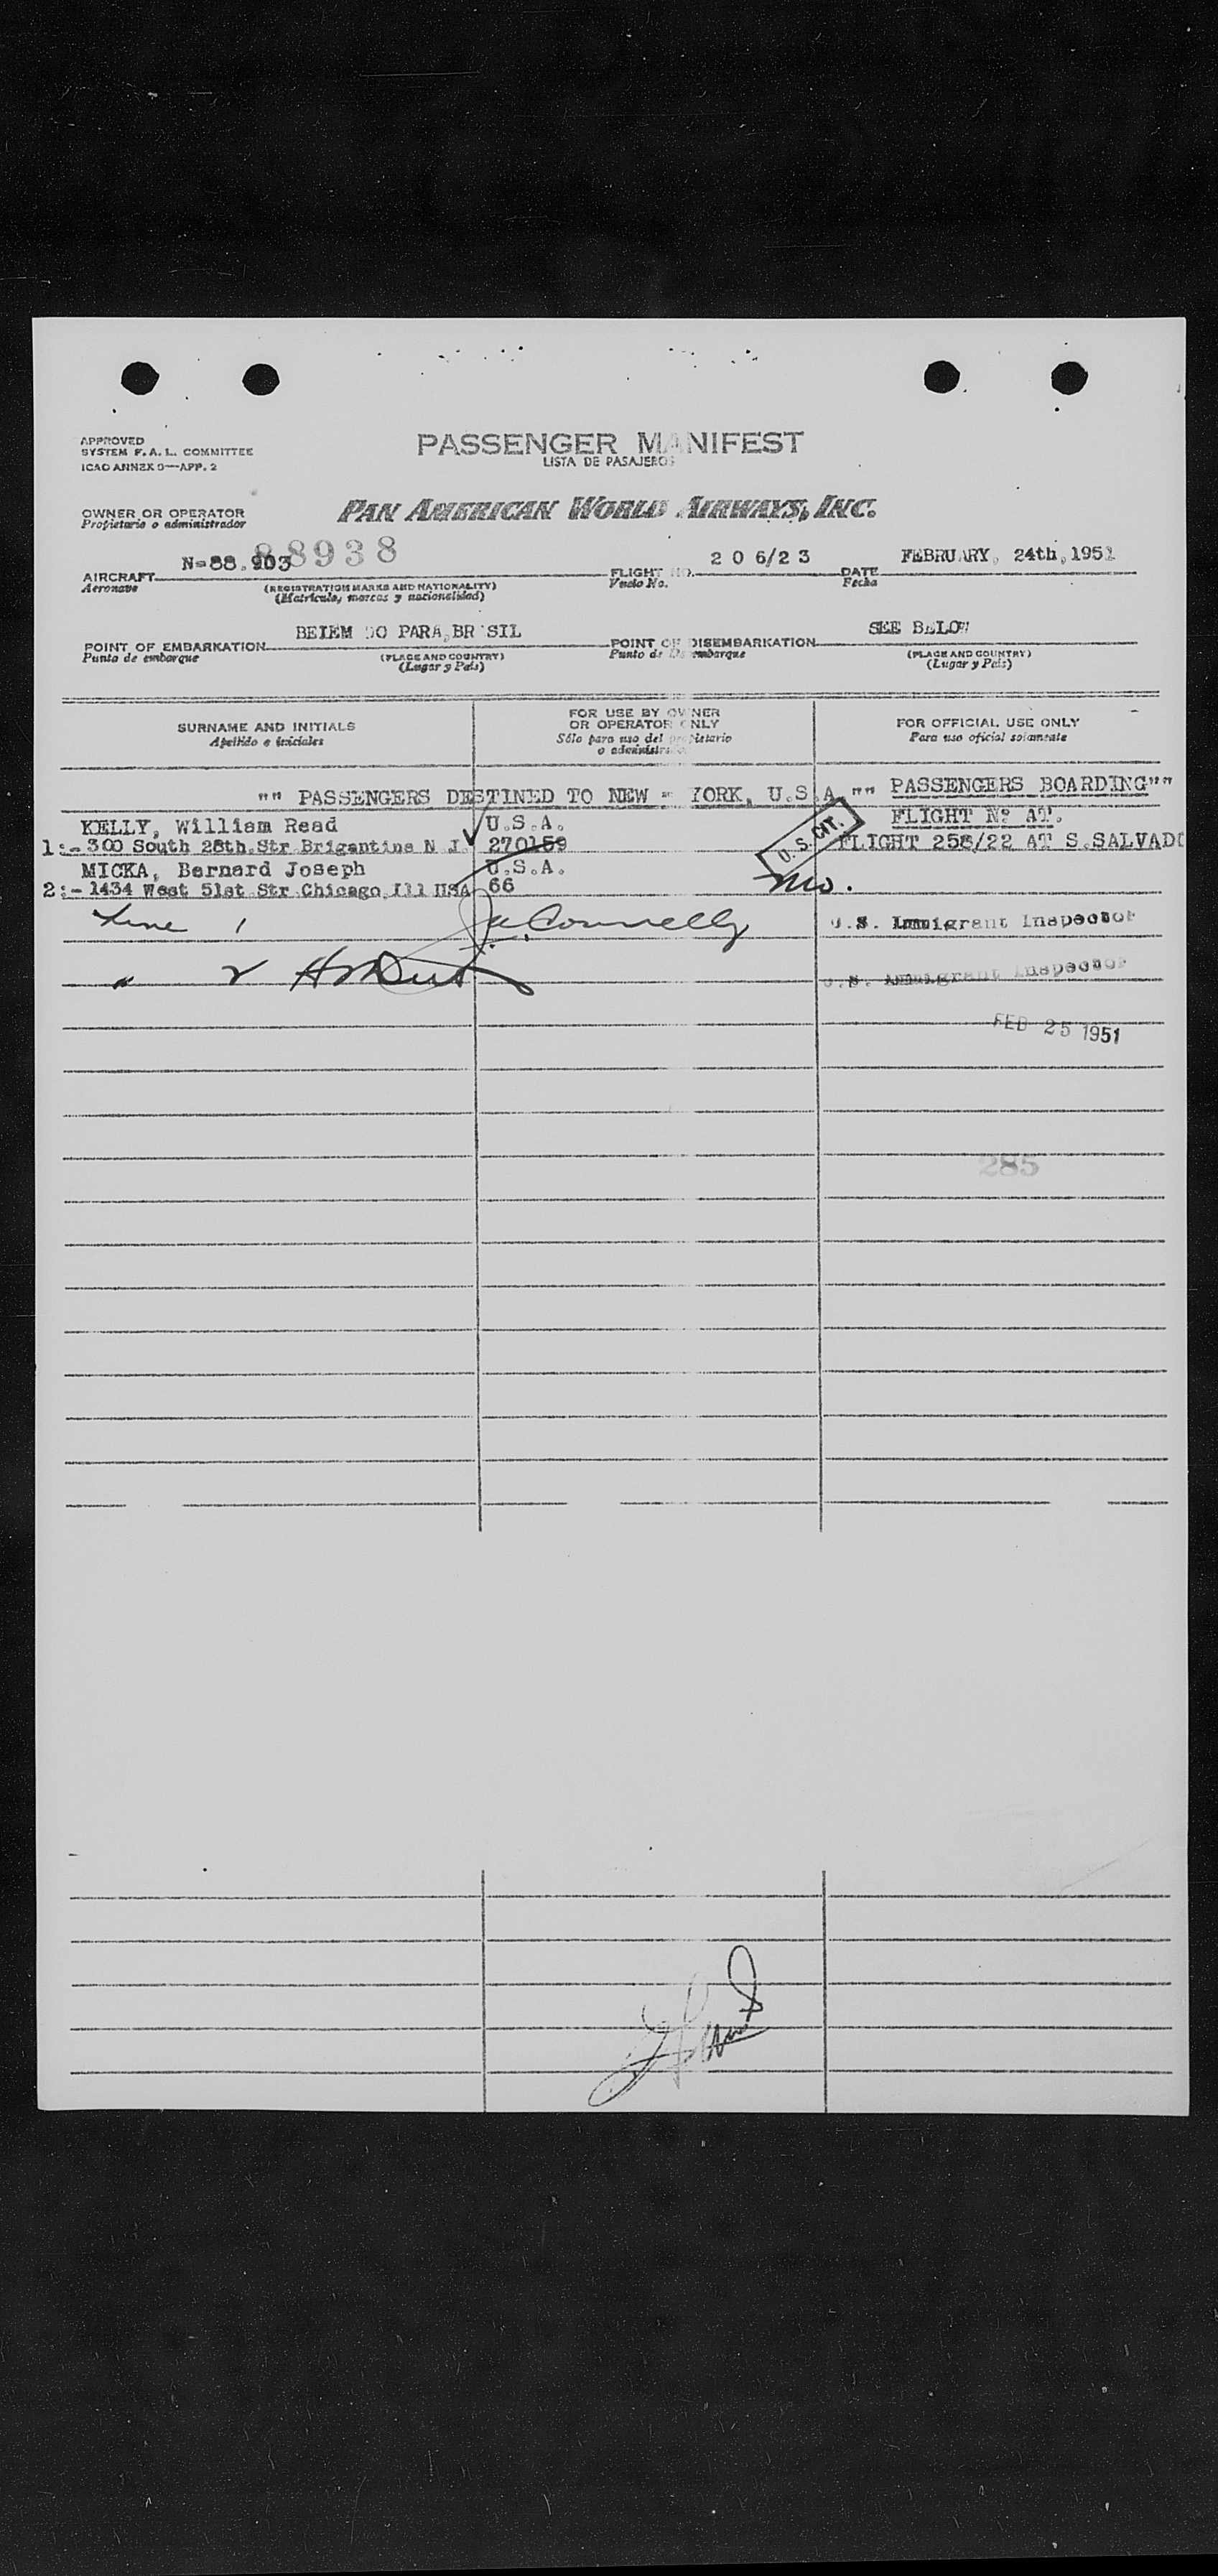 APPROVED
SYSTEM F. A. L. COMMITTEE
ICAO ANNEX 9—APP. 2
PASSENGER MANIFEST
LISTA DE PASAJEROS
OWNER OR OPERATOR
Propietario o administrador
PAN AMERICAN WORLD AIRWAYS, INC.
N-88.903 88938
AIRCRAFT
Aeronave
(REGISTRATION MARKS AND NATIONALITY)
(Matrícula, marcas y nacionalidad)
FLIGHT NO. 2 0 6/2 3
Vuelo No.
DATE FEBRUARY, 24th, 1951
Fecha
POINT OF EMBARKATION BELEM DO PARA, BRASIL
Punto de embarque
(PLACE AND COUNTRY)
(Lugar y País)
POINT OF DISEMBARKATION SEE BELOW
Punto de Desembarque
(PLACE AND COUNTRY)
(Lugar y País)
SURNAME AND INITIALS
Apellido e iniciales
FOR USE BY OWNER
OR OPERATOR ONLY
Sólo para uso del propietario
o administrador
FOR OFFICIAL USE ONLY
Para uso oficial solamente
"" PASSENGERS DESTINED TO NEW - YORK, U.S.A."" PASSENGERS BOARDING""
KELLY, William Read U.S.A. FLIGHT Nº AT.
1:- 300 South 28th. Str. Brigantine N J. 270159 U.S. CIT. FLIGHT 258/22 AT S.SALVADO
MICKA, Bernard Joseph U.S.A.
2:- 1434 West 51st Str Chicago, Ill USA 66
Line 1 Connelly U.S. Immigrant Inspector
" 2 U.S. Immigrant Inspector
FEB 25 1951
285